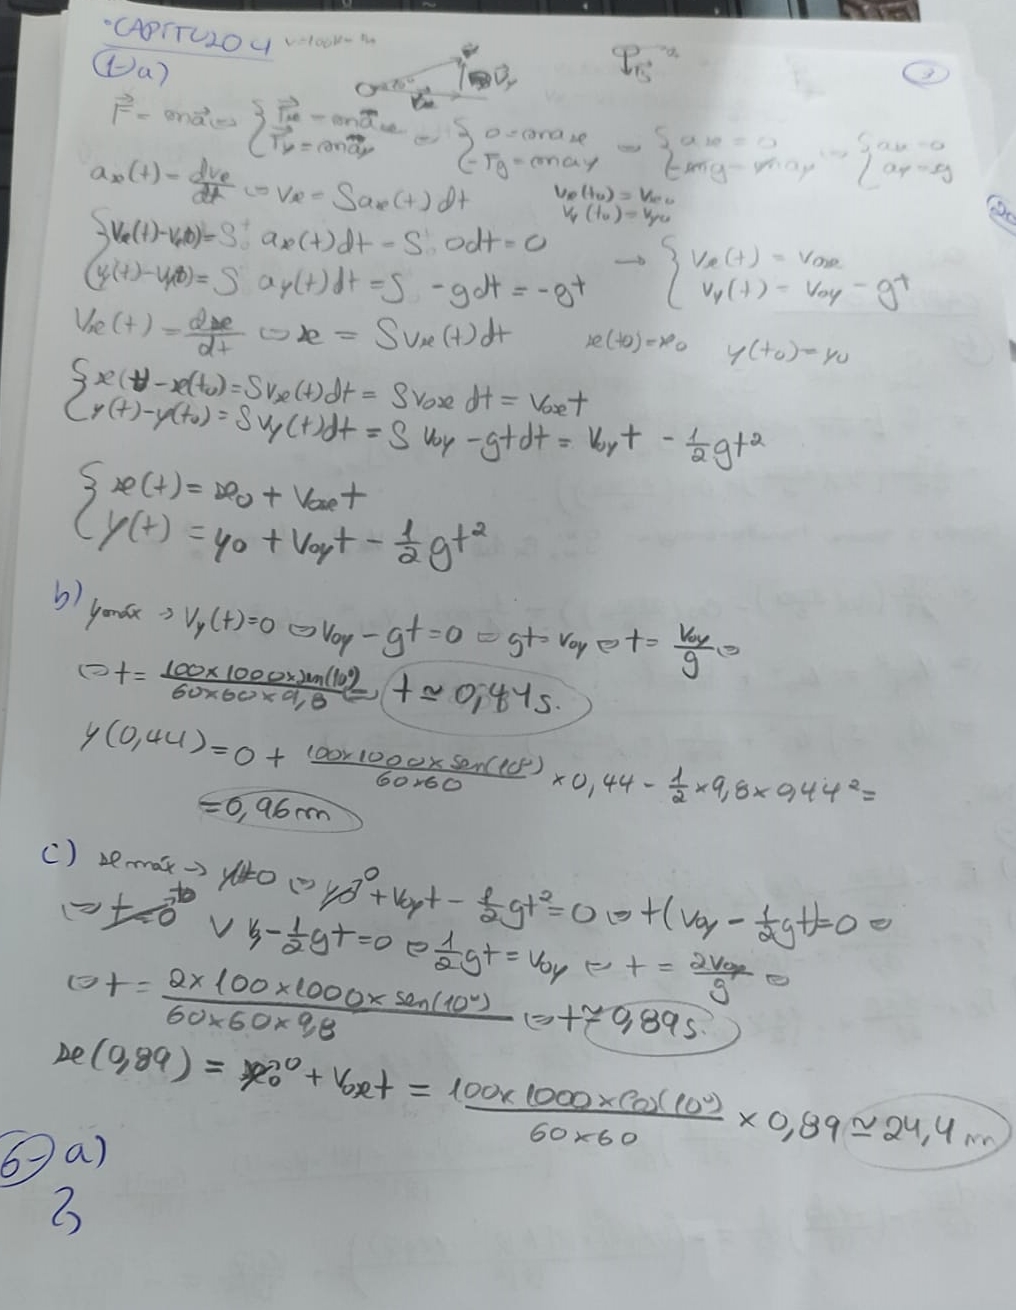 CAPÍTULO 4 v=100km/h
1-a)
F = ma ⇔ { Fx = max Fy = may ⇔ { 0 = max -Fg = may ⇔ { ax = 0 -mg = may ⇔ { ax = 0 ay = -g
ax(t) = dvx/dt ⇔ vx = ∫ax(t)dt vx(t0) = vx0 vy(t0) = vy0
{ vx(t) - vx(t0) = ∫ ax(t)dt = ∫ 0dt = 0 → { vx(t) = v0x
vy(t) - vy(t0) = ∫ ay(t)dt = ∫ -gdt = -gt vy(t) = v0y - gt
Vx(t) = dx/dt ⇔ x = ∫vx(t)dt x(t0) = x0 y(t0) = y0
{ x(t) - x(t0) = ∫vx(t)dt = ∫v0x dt = v0xt
y(t) - y(t0) = ∫vy(t)dt = ∫ v0y - gtdt = v0yt - 1/2 gt²
{ x(t) = x0 + v0xt
y(t) = y0 + v0yt - 1/2 gt²
b) ymáx → vy(t) = 0 ⇔ v0y - gt = 0 ⇔ gt = v0y ⇔ t = v0y/g ⇔
⇔ t = 100×1000×sen(10°)/60×60×9,8 ⇔ t ≃ 0,44s.
y(0,44) = 0 + 100×1000×sen(10°)/60×60 × 0,44 - 1/2 × 9,8 × 0,44² =
= 0,96m
c) xmáx → y=0 ⇔ y0 0 + v0yt - 1/2 gt² = 0 ⇔ t(v0y - 1/2 gt) = 0 ⇔
⇔ t = 0 ∨ v0y - 1/2 gt = 0 ⇔ 1/2 gt = v0y ⇔ t = 2v0y/g ⇔
⇔ t = 2×100×1000×sen(10°)/60×60×9,8 ⇔ t ≃ 0,89s.
x(0,89) = x0 0 + v0xt = 100×1000×cos(10°)/60×60 × 0,89 ≃ 24,4m
6-a)